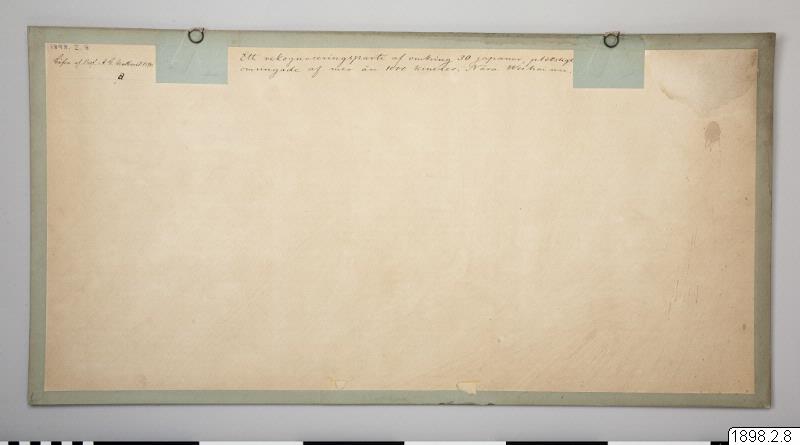 1898.2.8
Ett rekognoceringsparti af omkring 30 japaner, plötsligt
omringade af mer än 1000 kineser. Nära Weihaiwei.
af Kapt. A. G.
a
1898.2.8